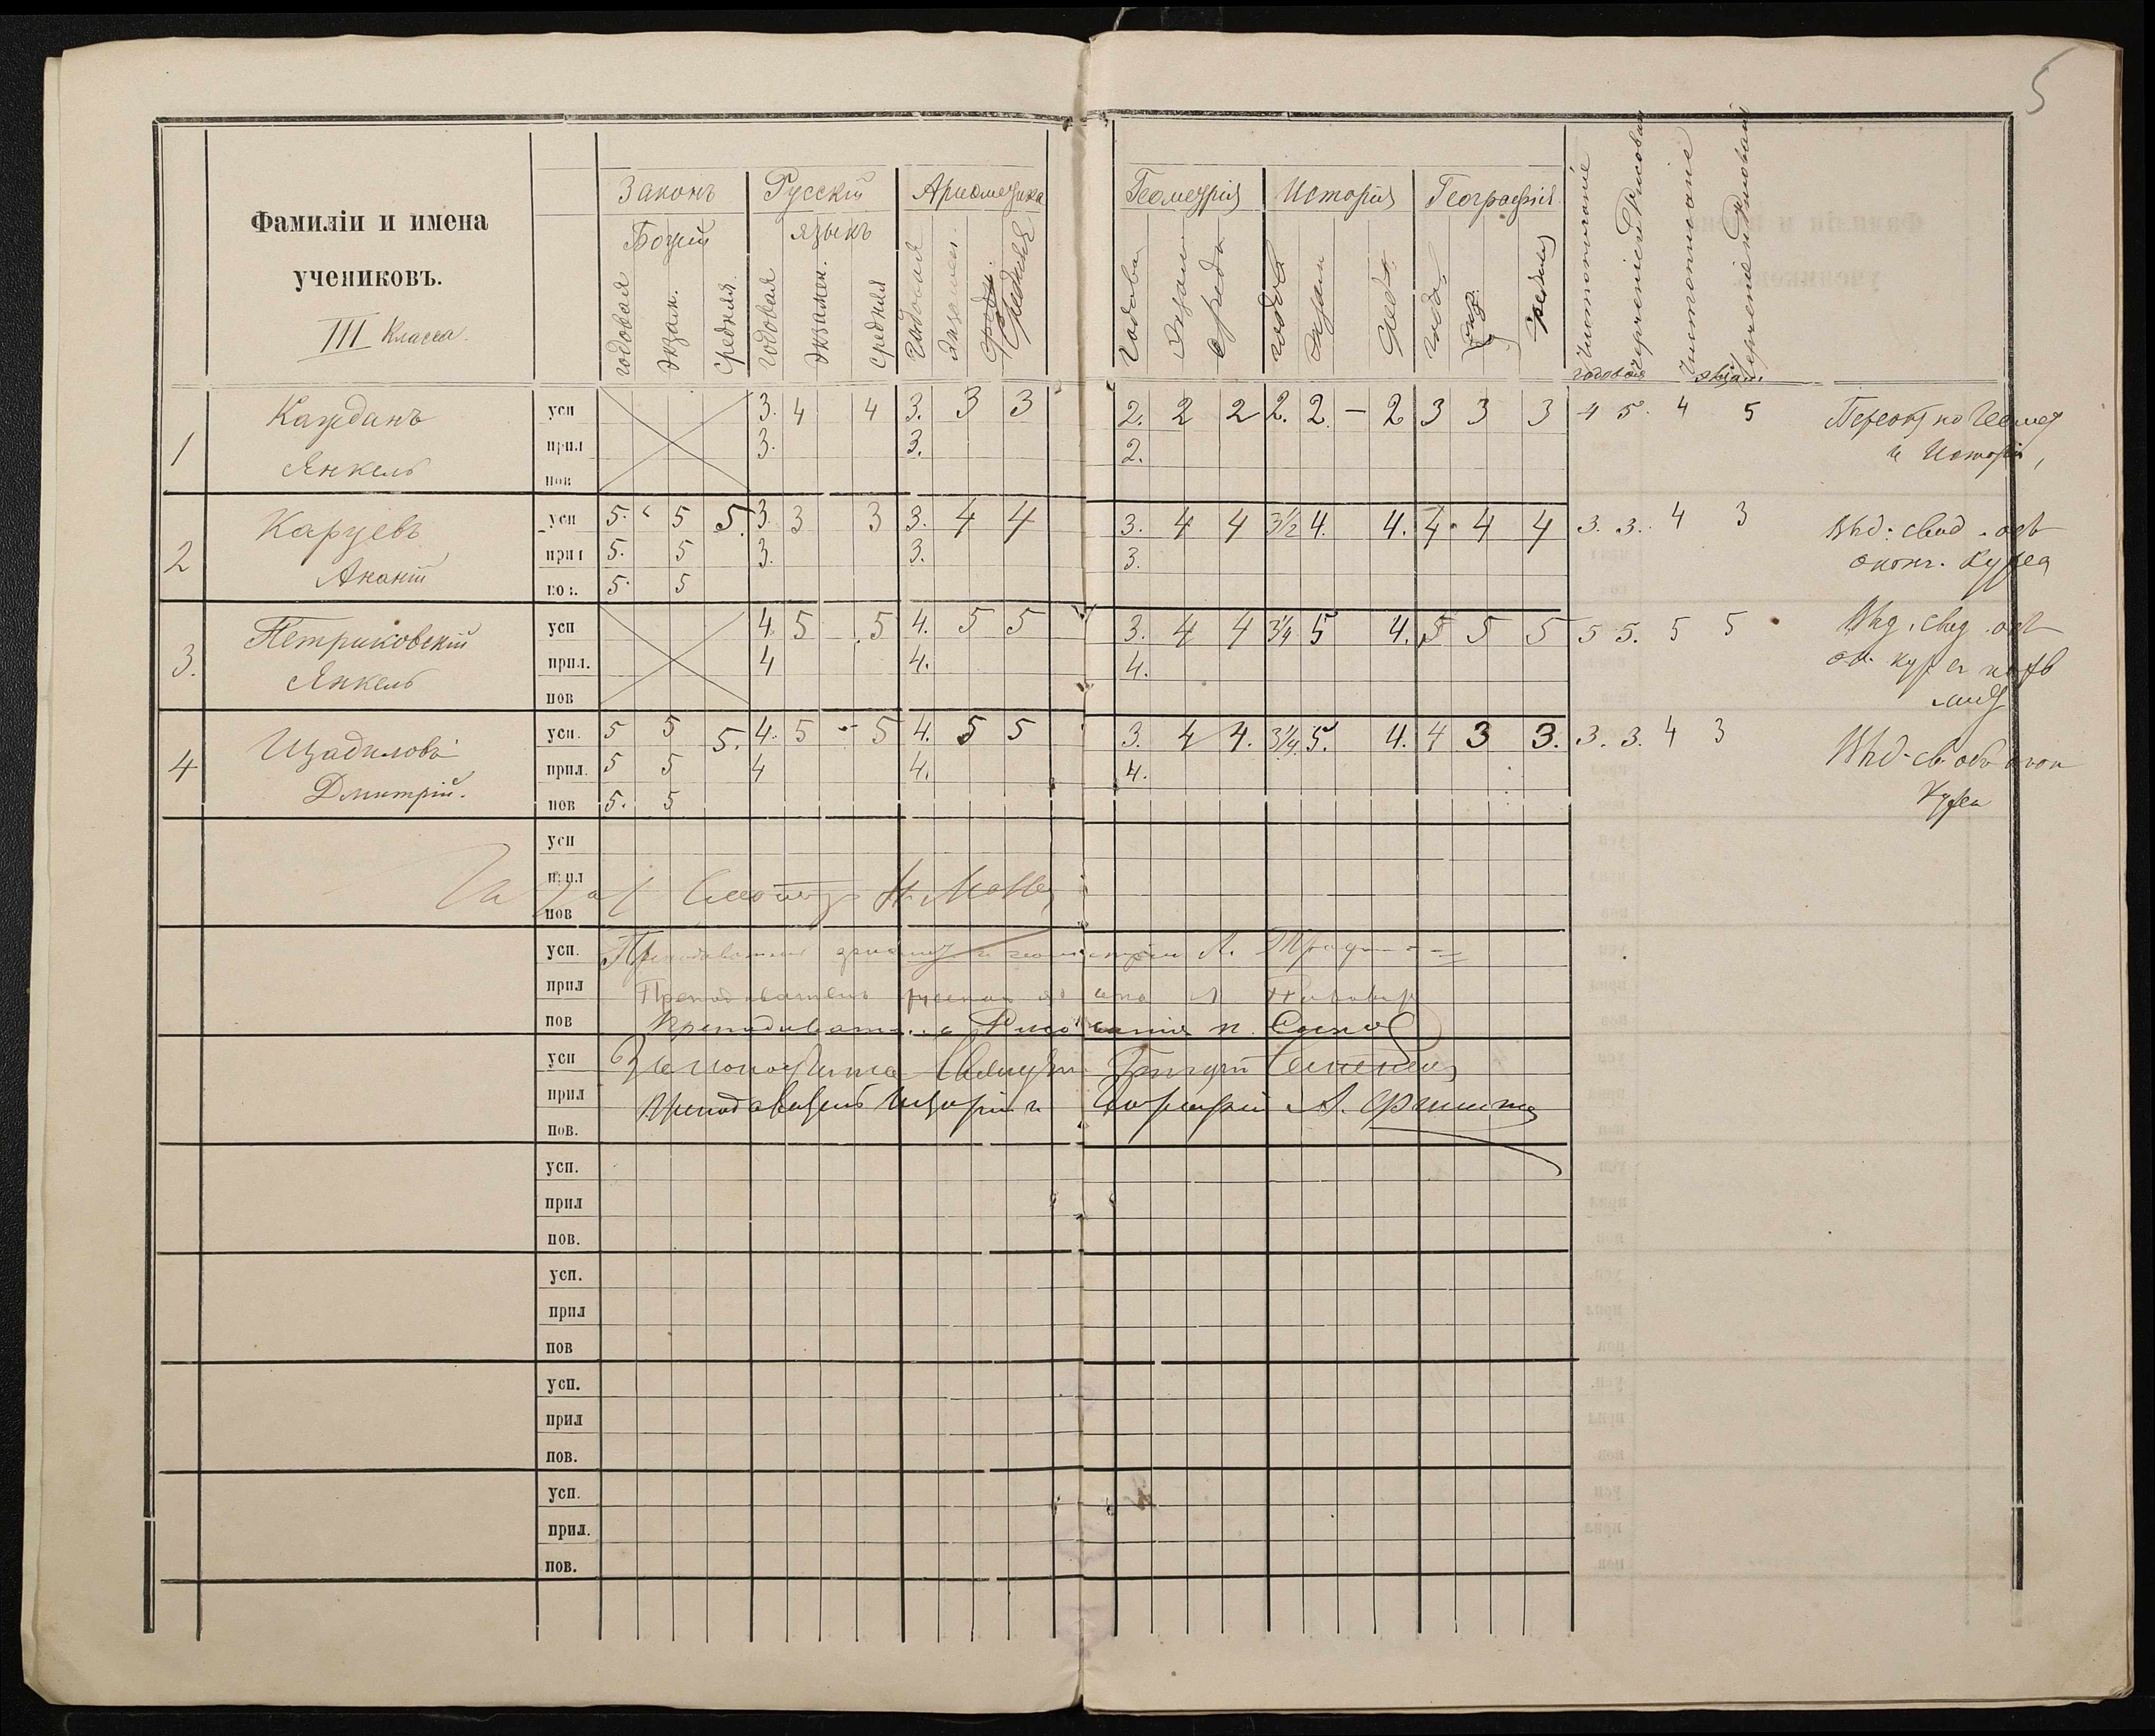 5
Фамиліи и имена
учениковъ.
III Класса.
Законъ Божій
годовая экзам. средняя
Русскій языкъ
годовая экзамен. средняя
Ариѳметика
годовая экзамен. средняя
Геометрія
годова экзам средн
Исторія
годов экзам сред.
Географія
годов. экз. средняя
Чистописаніе Черченіе и Рисованіе Чистописаніе Черченіе и Рисованіе
годовая экзам.
1 Кажданъ усп 3. 4 4 3. 3 3 2. 2 2 2. 2. — 2 3 3 3 4 5. 4 5 Переэкз по Геомет
Янкель прил 3. 3. 2. и Исторіи,
пов
2 Карцевъ усп 5. 5 5. 3. 3 3 3. 4 4 3. 4 4 3½ 4. 4. 4. 4 4 3. 3. 4 3 Выд. свид. объ
Ананій прил 5. 5 3. 3. 3. оконч. курса
пов. 5. 5
3. Петриковскій усп 4. 5 5 4. 5 5 3. 4 4 3¼ 5 4. 5 5 5 5 5. 5 5 Выд. свид. объ
Янкель прил. 4 4. 4. ок. курса
пов
4 Щадиловъ усп. 5 5 5. 4. 5 - 5 4. 5 5 3. 4 4. 3¼ 5. 4. 4 3 3. 3. 3. 4 3 Выд. св. объ окон
Дмитрій. прил. 5 5 4 4. 4. курса
пов 5. 5
усп
прил
пов
усп. Преподаватель ариѳмет. и геометріи А.
прил Преподаватель русскаго языка
пов Преподаватель Рисованія
усп Законоучитель Священ. Григорій
прил Преподаватель Исторіи и Географіи А.
пов.
усп.
прил
пов.
усп.
прил
пов
усп.
прил
пов.
усп.
прил.
пов.